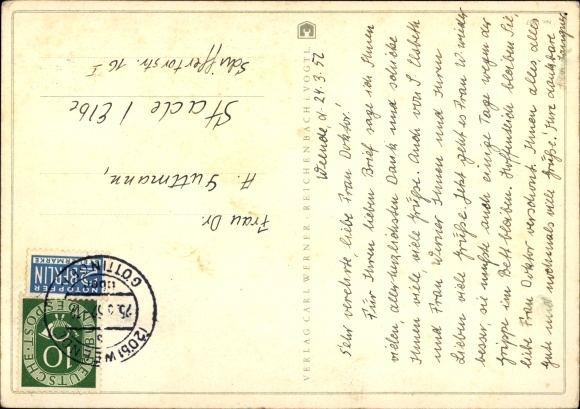 Weende, d. 24.3.52
Sehr verehrte, liebe Frau Doktor!
Für Ihren lieben Brief sage ich Ihnen
vielen, allerherzlichsten Dank und schicke
Ihnen viele, viele Grüße. Auch von S. Elsbeth
und Frau Werner Ihnen und Ihren
Lieben viele Grüße. Jetzt geht es Frau W. wieder
besser, sie mußte auch einige Tage wegen der
Grippe im Bett bleiben. Hoffentlich bleiben Sie,
liebe Frau Doktor verschont. Ihnen alles, alles
gute und nochmals viele Grüße! Ihre dankbare
VERLAG CARL WERNER, REICHENBACH I. VOGTL.
Frau Dr.
H. Guttmann,
Stade / Elbe
Schiffertorstr. 16 I
NOTOPFER
2 BERLIN
STEUERMARKE
DEUTSCHE BUNDESPOST
10
(20b) WEENDE
GÖTTINGEN